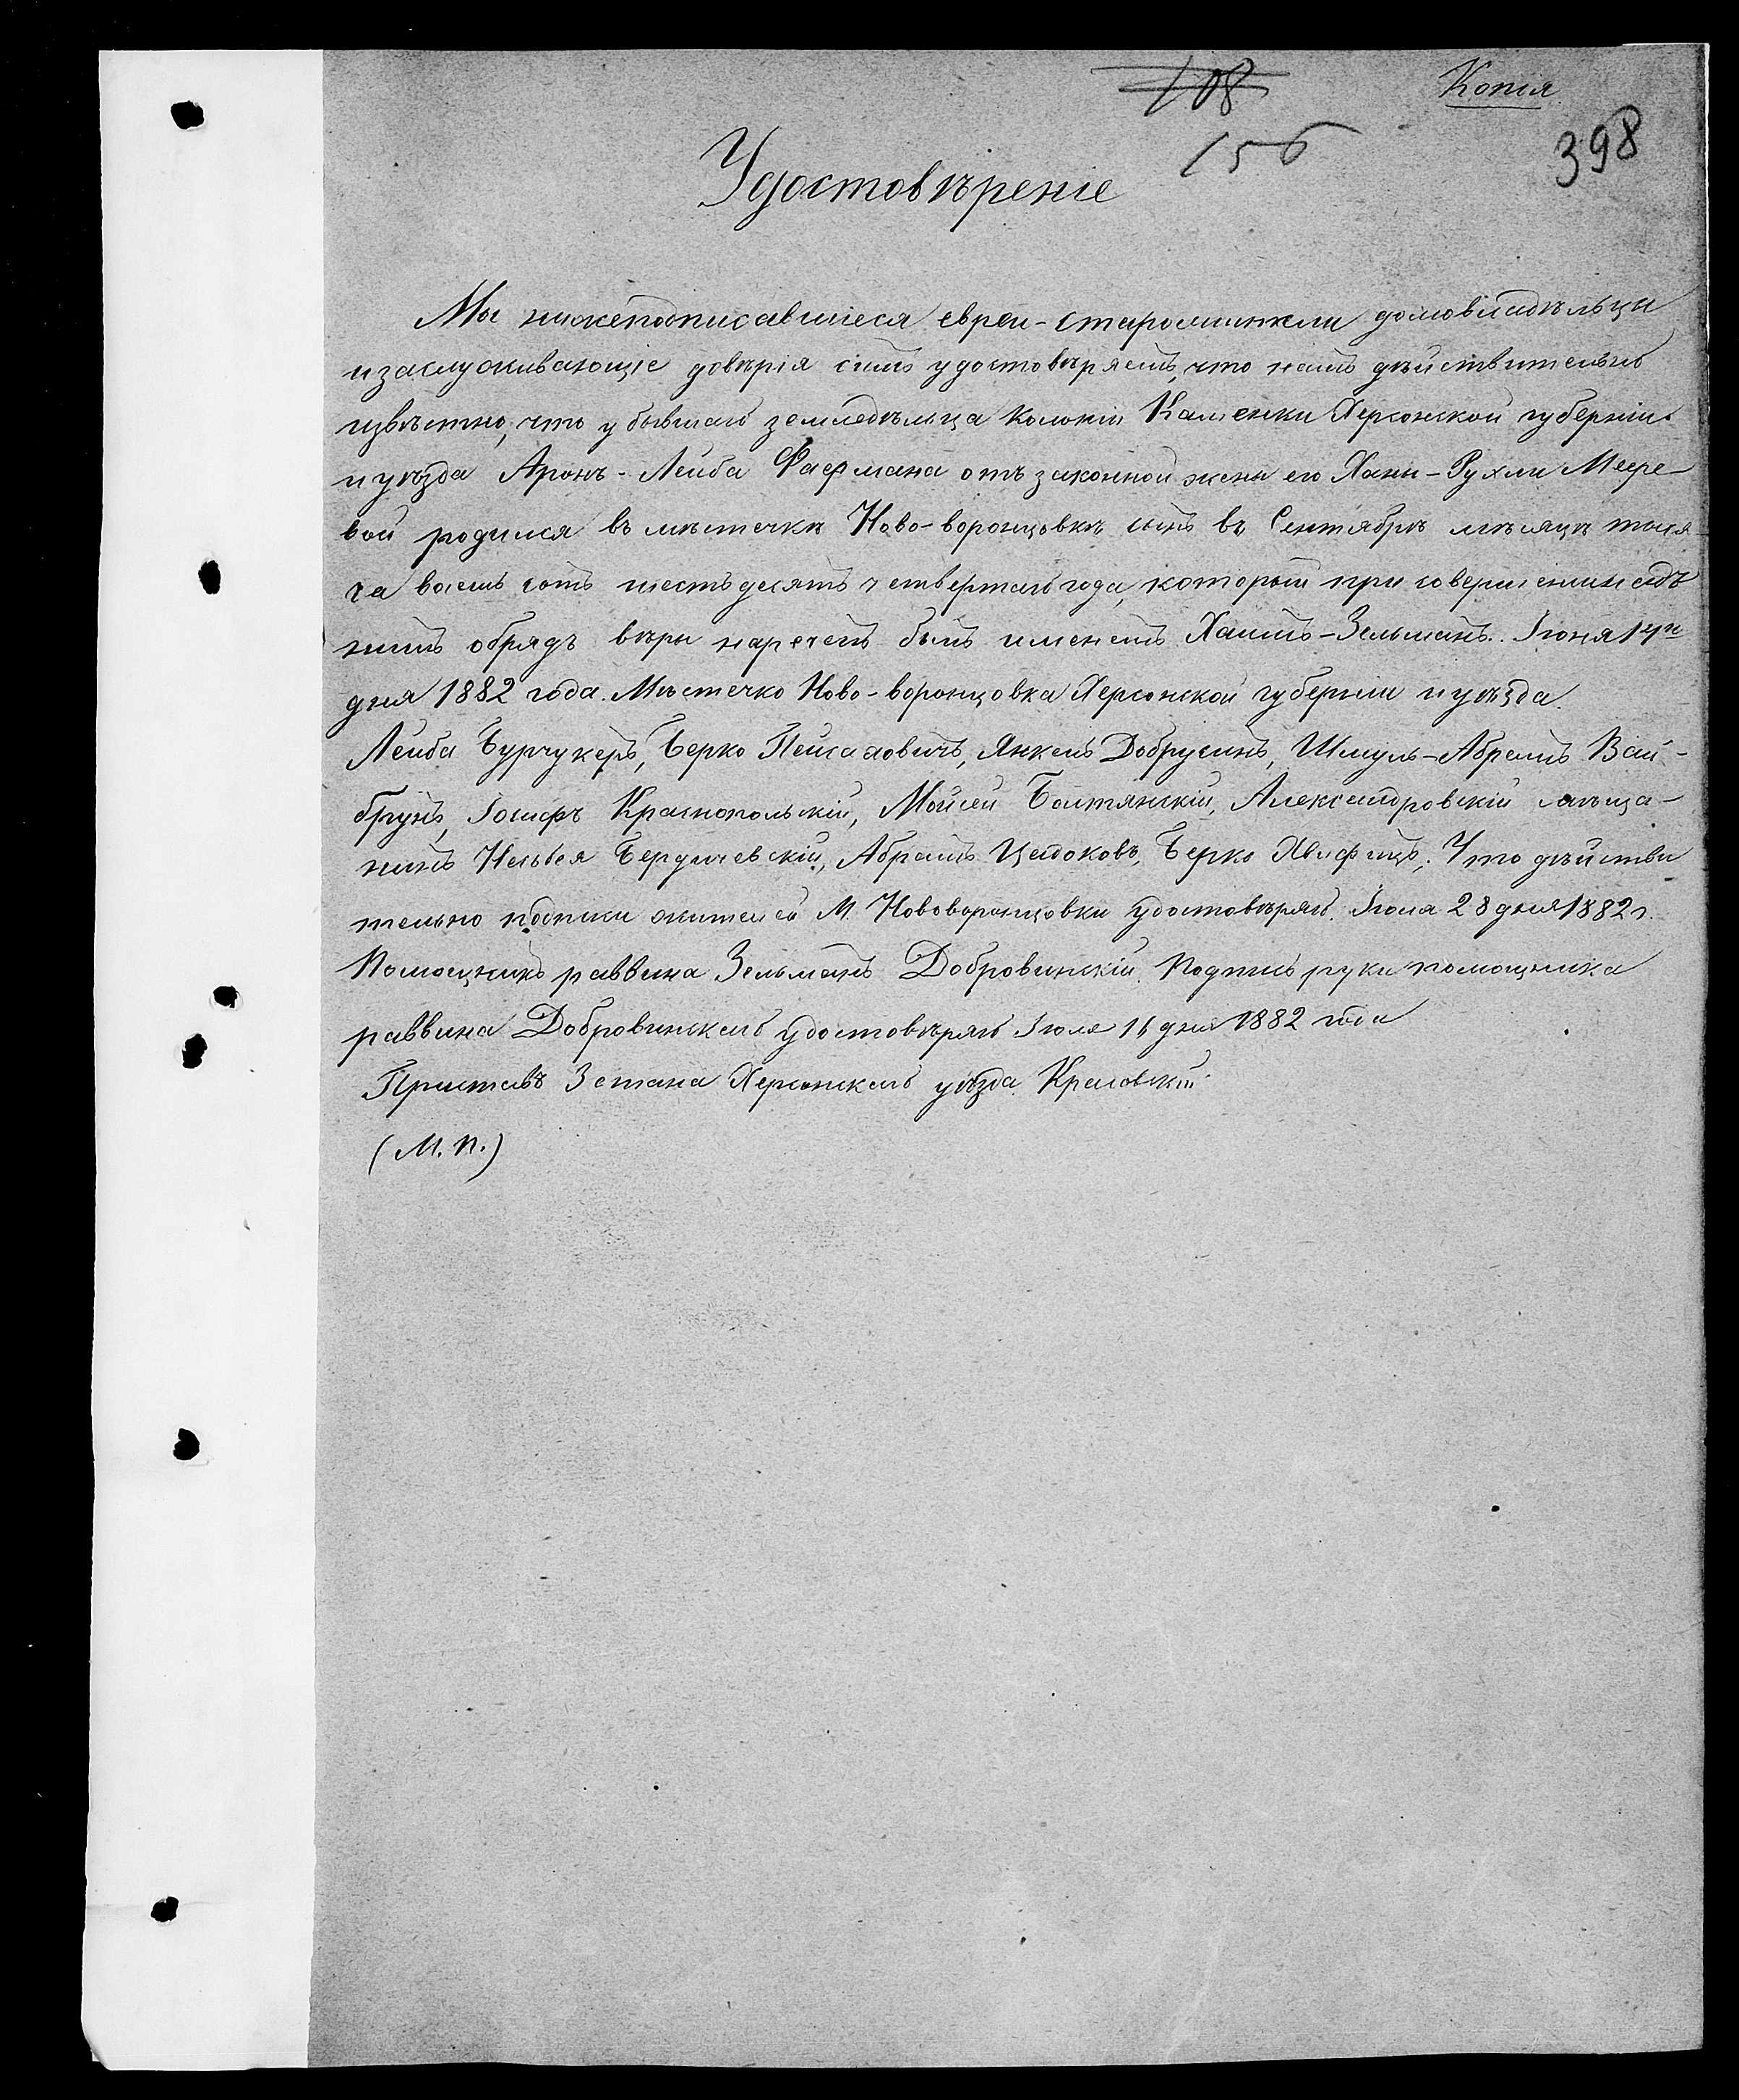 108
Копія
156
398
Удостовѣреніе
Мы нижеподписавшіеся евреи-старожилы домовладѣльцы
и заслуживающіе довѣрія симъ удостовѣряемъ, что намъ дѣйствительно
извѣстно, что у бывшаго земледѣльца колоніи Каменки Херсонской губерніи
и уѣзда Аронъ-Лейба Фафмана отъ законной жены его Ханы-Рухли Меере
вой родился въ мѣстечкѣ Ново-воронцовкѣ сынъ въ Сентябрѣ мѣсяцѣ тыся
ча восемь сотъ шестьдесятъ четвертаго года, который при совершении надъ
нимъ обрядъ вѣры нареченъ былъ именемъ Хаимъ-Зельманъ. Іюня
дня 1882 года. Мѣстечко Ново-воронцовка Херсонской губерніи и уѣзда.
Лейба Бурчукеръ, Берко Пейсаховичъ, Янкель Добрусинъ, Шмуль-Абрамъ Вай-
брунъ, Іосифъ Краснопольскій, Мойсей Балтянскій, Александровскій мѣща-
нинъ Бердичевскій, Абрамъ Цадоковъ, Берко. Что дѣйстви
тельно подписи жителей М. Нововоронцовки удостовѣряю. 28 дня 1882 г.
Помощникъ раввина Зельманъ Добровинскій. Подпись руки помощника
раввина Добровинскаго удостовѣряю Іюля 16 дня 1882 года
Приставъ 3 стана Херсонскаго уѣзда
(М. П.)